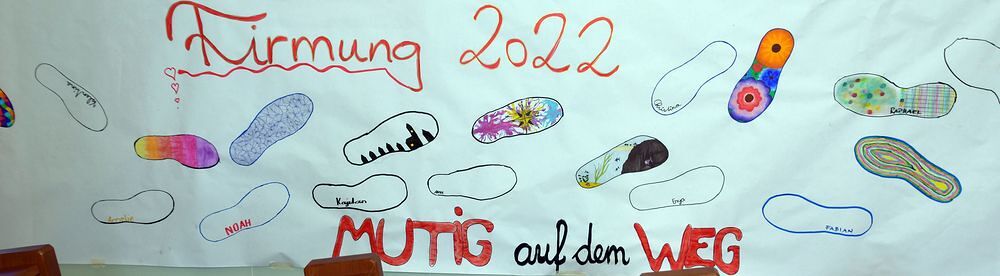 Firmung 2022
RAPHAEL
NOAH
FABIAN
MUTIG auf dem WEG